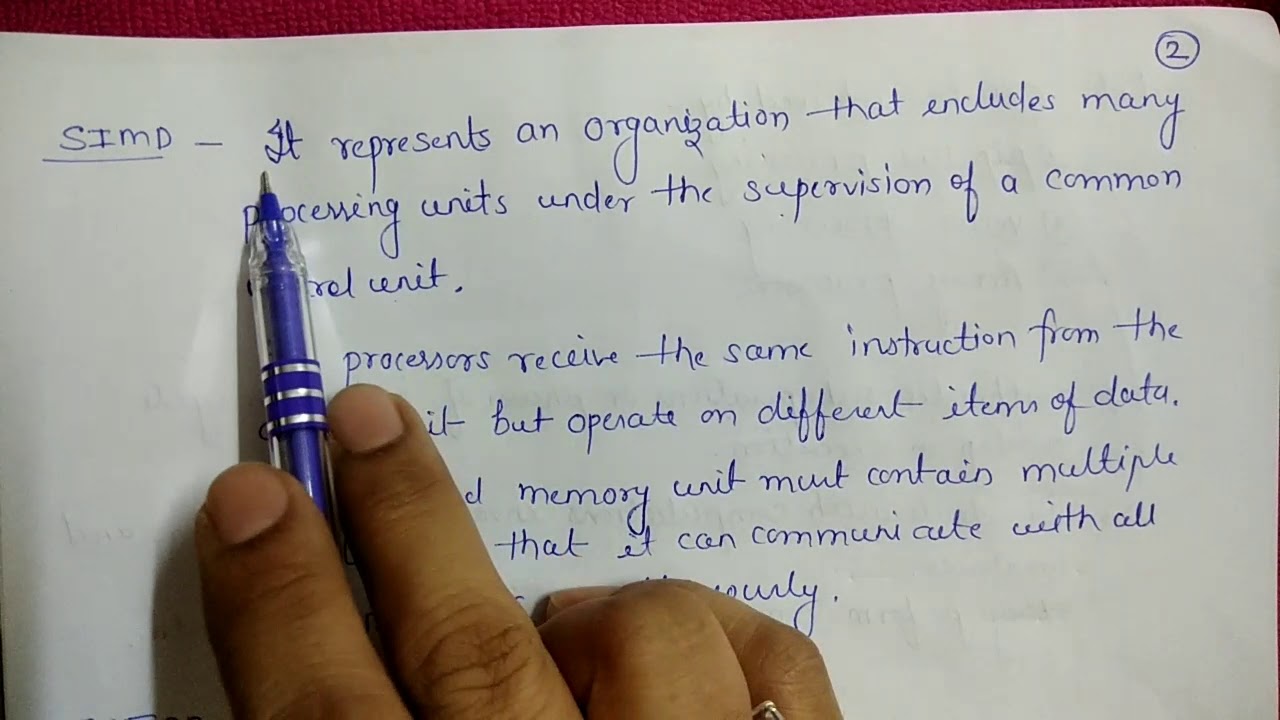 2
SIMD - It represents an organization that encludes many
processing units under the supervision of a common
unit.
processors receive the same instruction from the
but operate on different items of data.
memory unit must contain multiple
that it can communicate with all